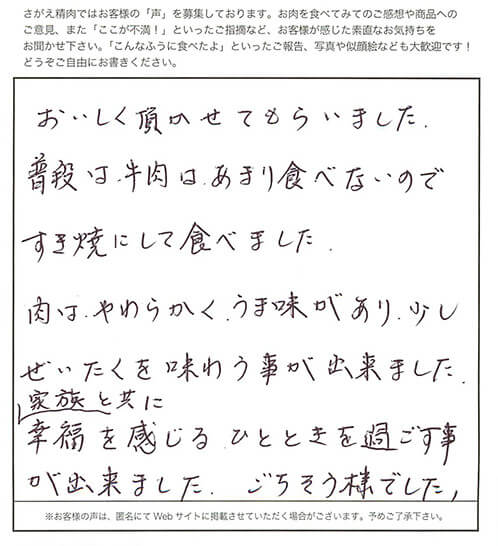 さがえ精肉ではお客様の「声」を募集しております。お肉を食べてみてのご感想や商品への
ご意見、また「ここが不満!」といったご指摘など、お客様が感じた素直なお気持ちを
お聞かせ下さい。「こんなふうに食べたよ」といったご報告、写真や似顔絵なども大歓迎です!
どうぞご自由にお書きください。
おいしく頂かせてもらいました.
普段は、牛肉は、あまり食べないので
すき焼にして食べました.
肉は、やわらかく、うま味があり、少し
ぜいたくを味わう事が出来ました.
家族と共に
幸福を感じるひとときを過ごす事
が出来ました. ごちそう様でした,
※お客様の声は、匿名にて Web サイトに掲載させていただく場合がございます。予めご了承下さい。